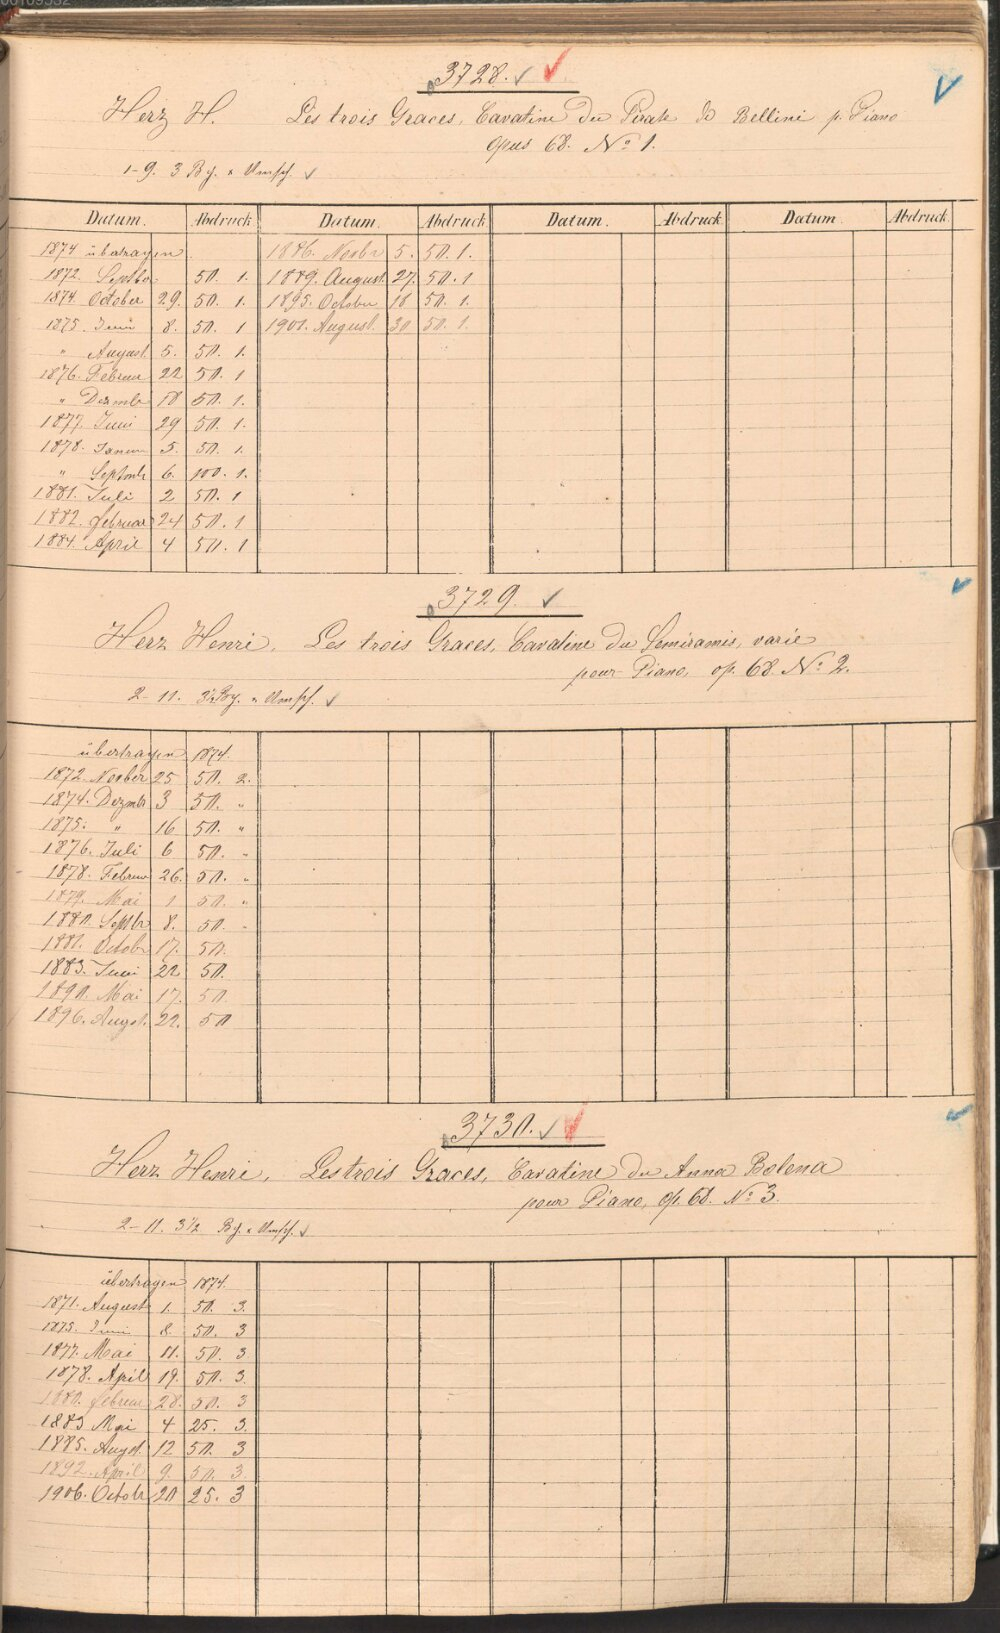 3728.
Herz H. Les trois Graces, Cavatine du Pirate de Bellini p. Piano
opus 68. No 1.
1-9. 3 Bg. u Umsch.
Datum. Abdruck Datum. Abdruck Datum. Abdruck Datum. Abdruck.
1874 übertragen
1872. Septbr 50. 1.
1874. October 29. 50. 1.
1875. Juni 8. 50. 1
" August 5. 50. 1.
1876. Februar 22 50. 1
" Dezmbr 18 50. 1.
1877. Juni 29 50. 1.
1878. Januar 5. 50. 1.
" Septmbr 6. 100. 1.
1881. Juli 2 50. 1
1882. Februar 24 50. 1
1884. April 4 50. 1
1886. Novbr 5. 50. 1.
1889. August 27. 50. 1
1895. October 18 50. 1.
1901. August. 30 50. 1.
3729.
Herz Henri, Les trois Graces, Cavatine du Semiramis, varie
pour Piano, op. 68. No 2.
2-11. 3½ Bg. u Umsch.
übertragen 1874.
1872. Novber 25 50. 2.
1874. Dezmbr 3 50. "
1875. " 16 50. "
1876. Juli 6 50. "
1878. Februar 26. 50. "
1879. Mai 1 50. "
1880. Septbr 8. 50. "
1881. Octobr 17. 50.
1883. Juni 22 50.
1890. Mai 17. 50.
1896. Augst. 22. 50
3730.
Herz Henri, Les trois Graces, Cavatine du Anna Bolena
pour Piano, op. 68. No 3.
2-11. 3½ Bg. u Umsch.
übertragen 1874.
1871. August 1. 50. 3.
1875. Juni 8. 50. 3
1877. Mai 11. 50. 3
1878. April 19. 50. 3.
1880. Februar 28. 50. 3
1883 Mai 4 25. 3.
1885. Augst. 12 50. 3
1892. April 9. 50. 3.
1906. Octobr 20 25. 3